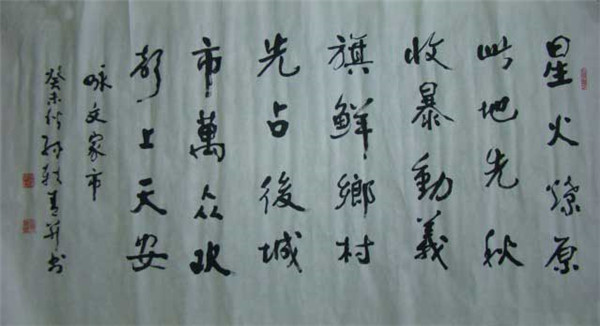 星火燎原
此地先秋
收暴動義
旗鮮鄉村
先占後城
市萬众欢
上天安
咏文家市
癸未作孫軼青并书